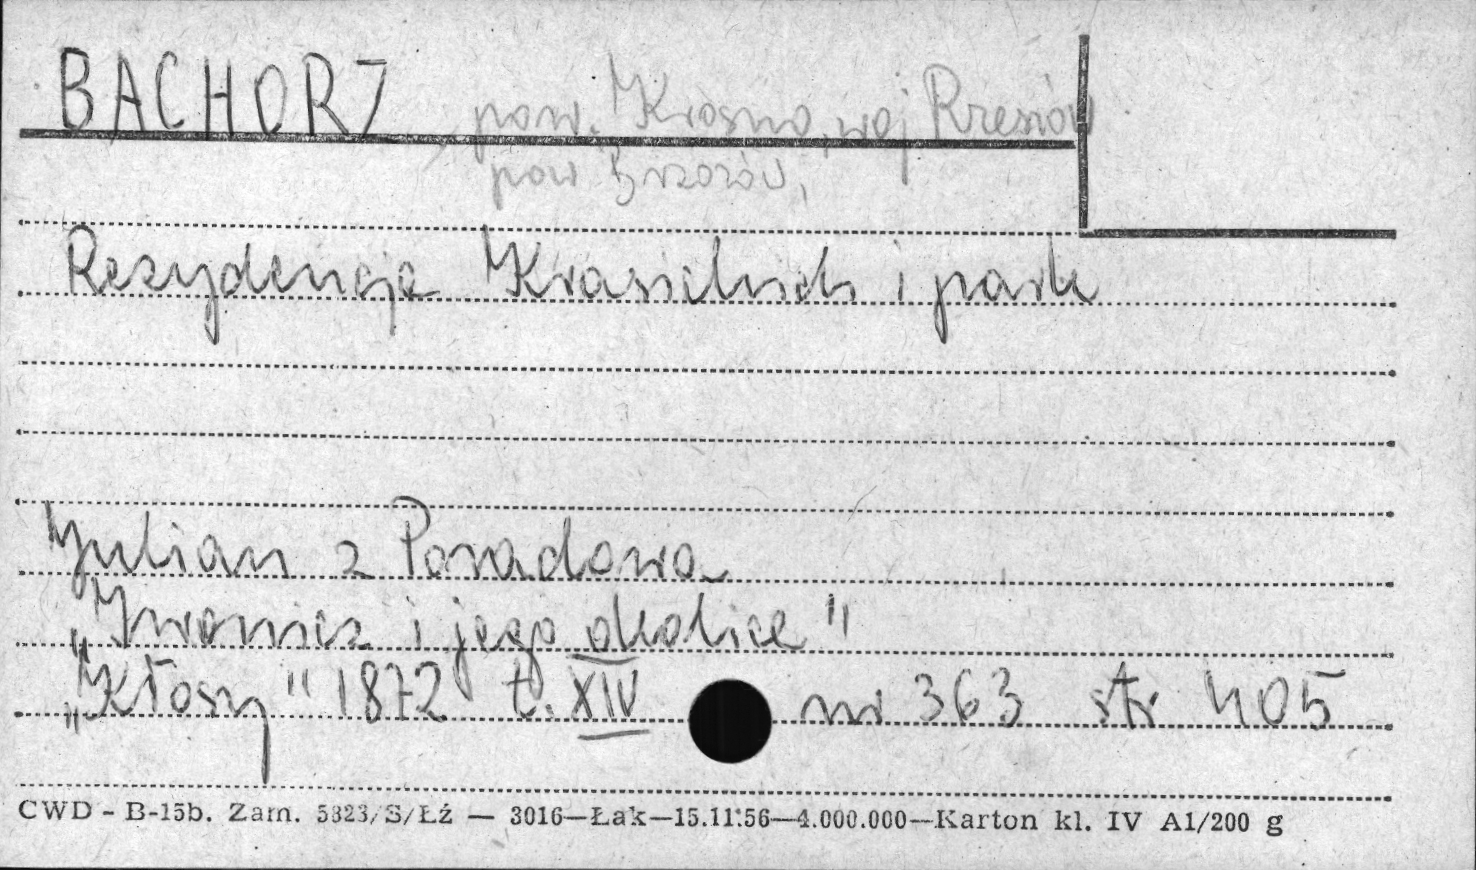 BACHORZ pow. Krosno, woj Rzeszów
pow Brzozów,
Rezydencja Krasickich i park
Julian z Poradowa
„Iwonicz i jego okolice"
„Kłosy" 1872 t. XIV nr 363 str 405
CWD - B-15b. Zam. 5823/S/Łź — 3016—Łak—15.11.56—4.000.000—Karton kl. IV A1/200 g